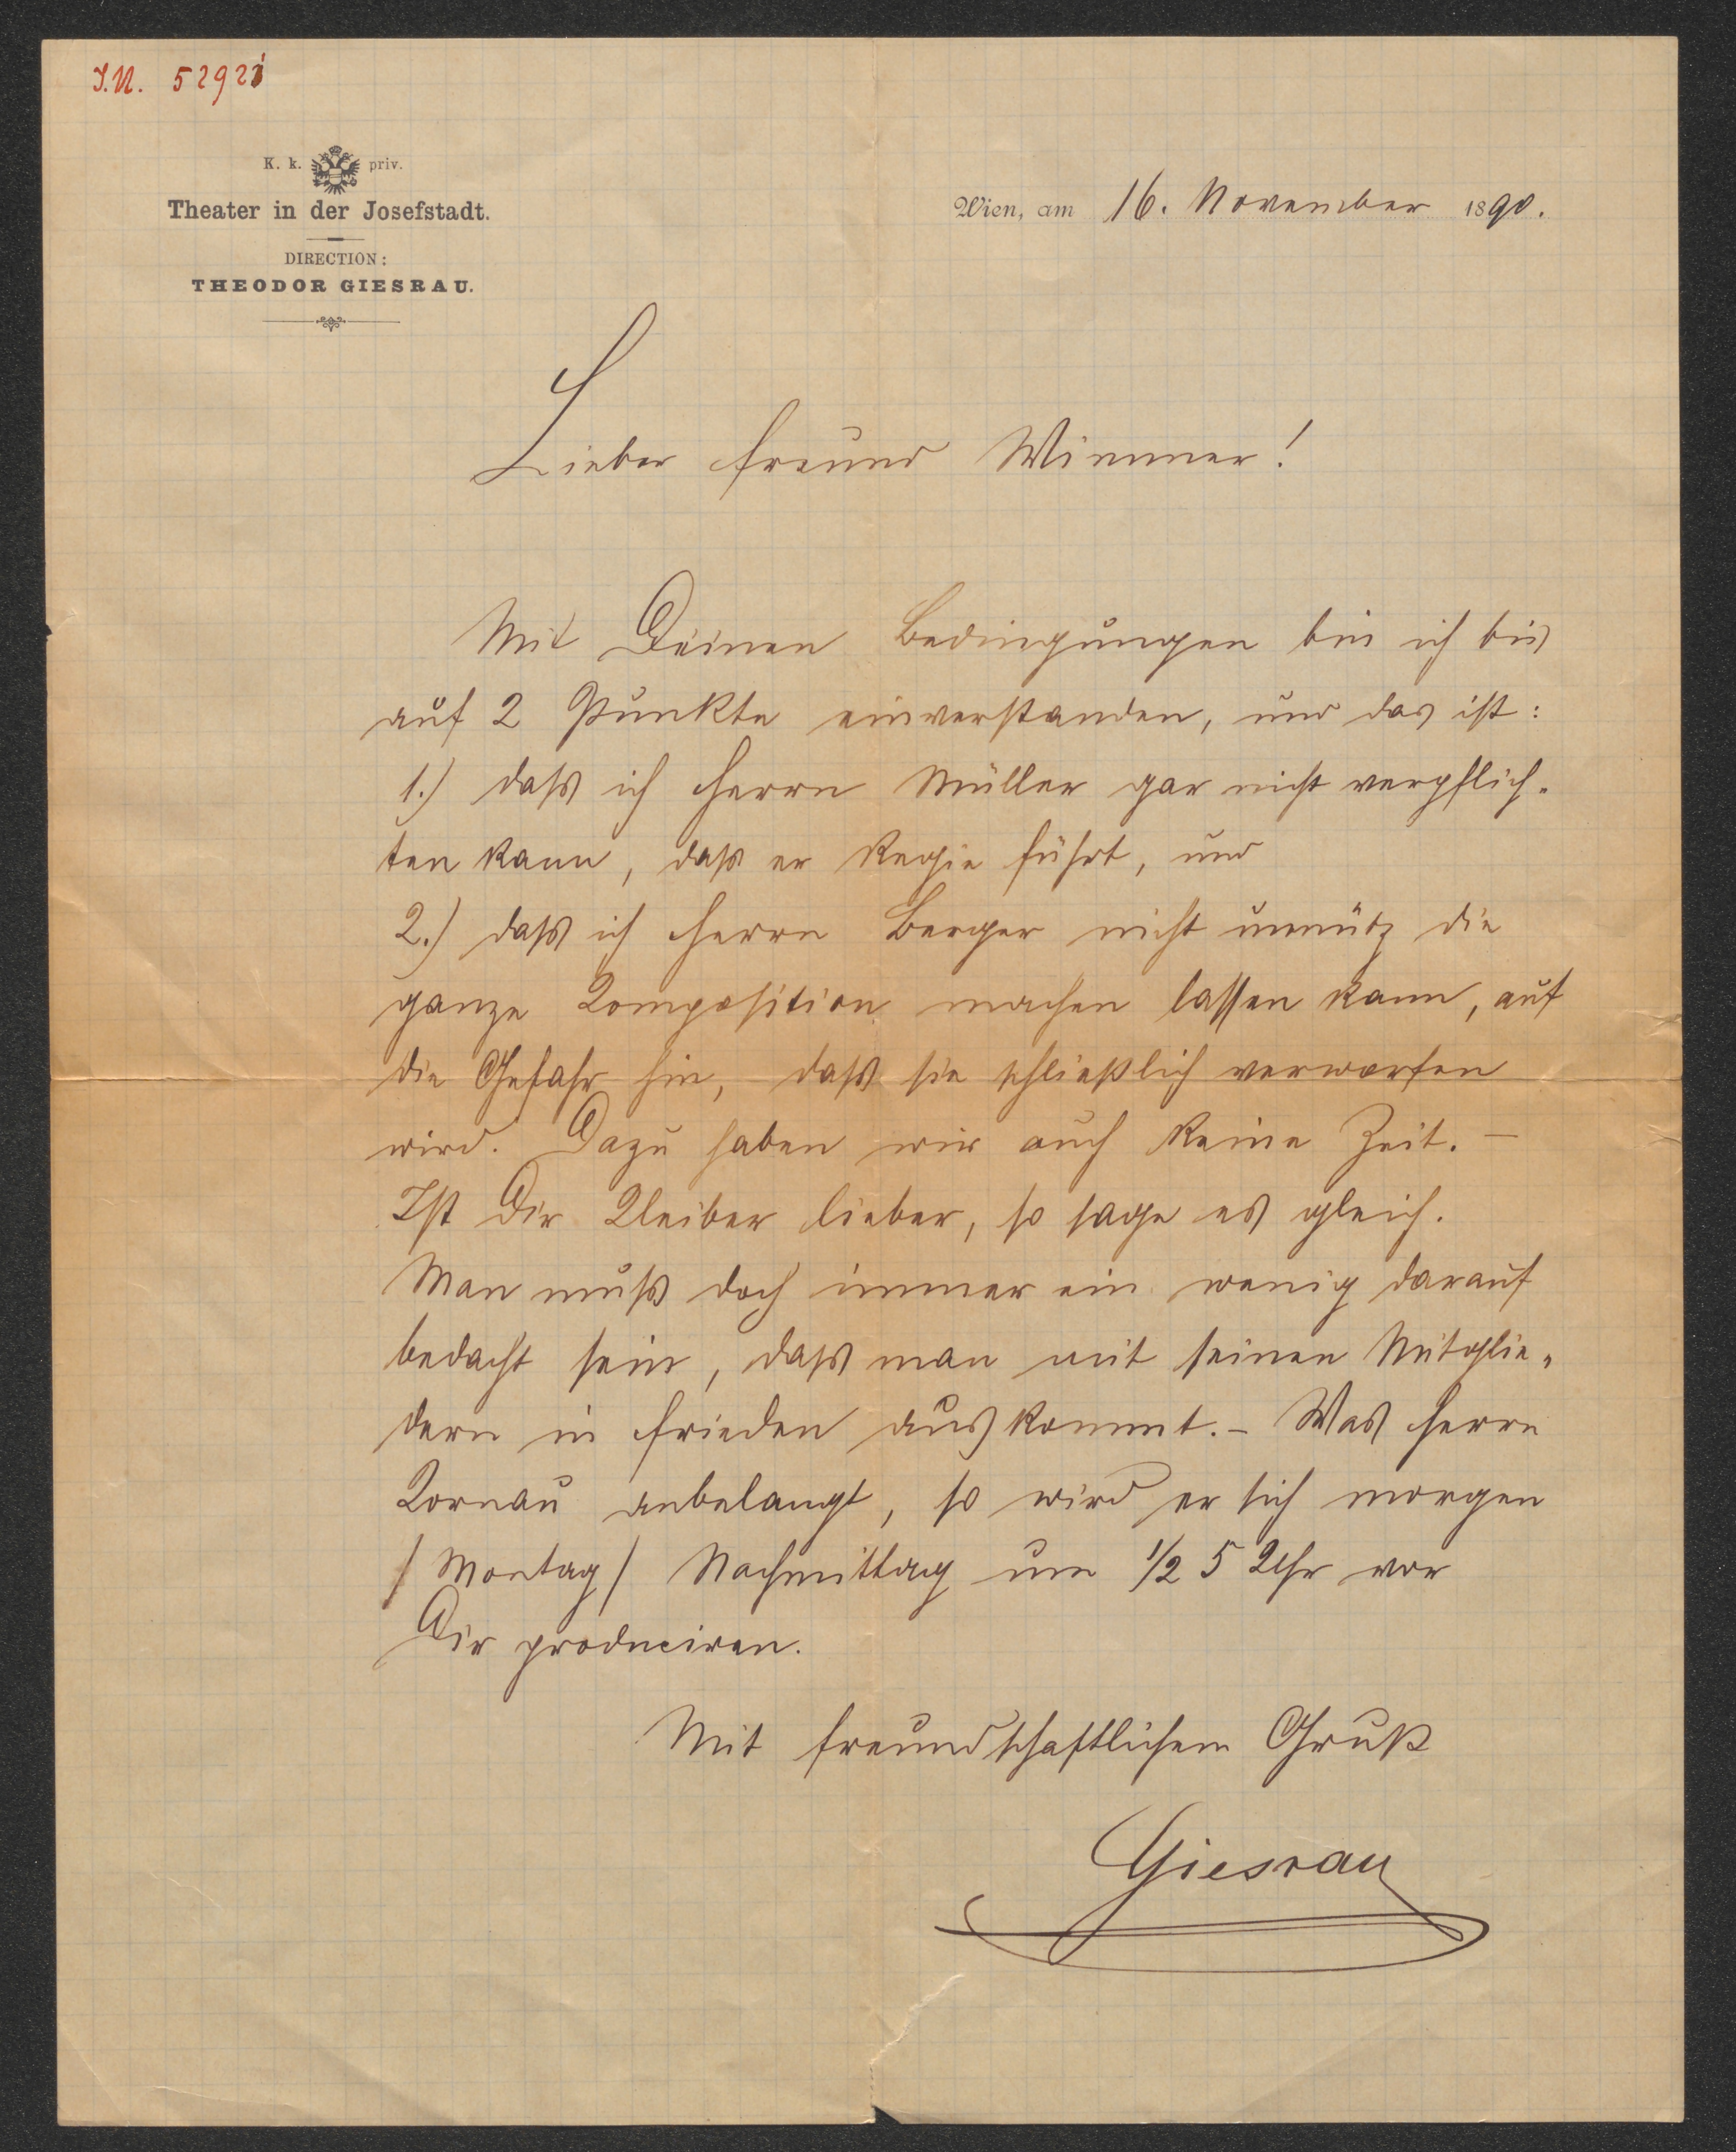 I.N. 52921
K. k. priv.
Theater in der Josefstadt.
DIRECTION:
THEODOR GIESRAU.
Wien, am 16. November 1890.
Lieber Freund Wimmer!
Mit Deinen Bedingungen bin ich bis
auf 2 Punkte einverstanden, und das ist:
1.) daß ich Herrn Müller gar nicht verpflich-
ten kann, daß er Regie führt, und
2.) daß ich Herrn Berger nicht unnütz die
ganze Composition machen lassen kann, auf
die Gefahr hin, daß sie schließlich verworfen
wird. Dazu haben wir auch keine Zeit. –
Ist Dir Kleiber lieber, so sage es gleich.
Man muß doch immer ein wenig darauf
bedacht sein, daß man mit seinen Mitglie-
dern in Frieden auskommt. – Was Herrn
Cornau anbelangt, so wird er sich morgen
/ Montag / Nachmittag um 1/2 5 Uhr vor
Dir produciren.
Mit freundschaftlichem Gruß
Giesrau